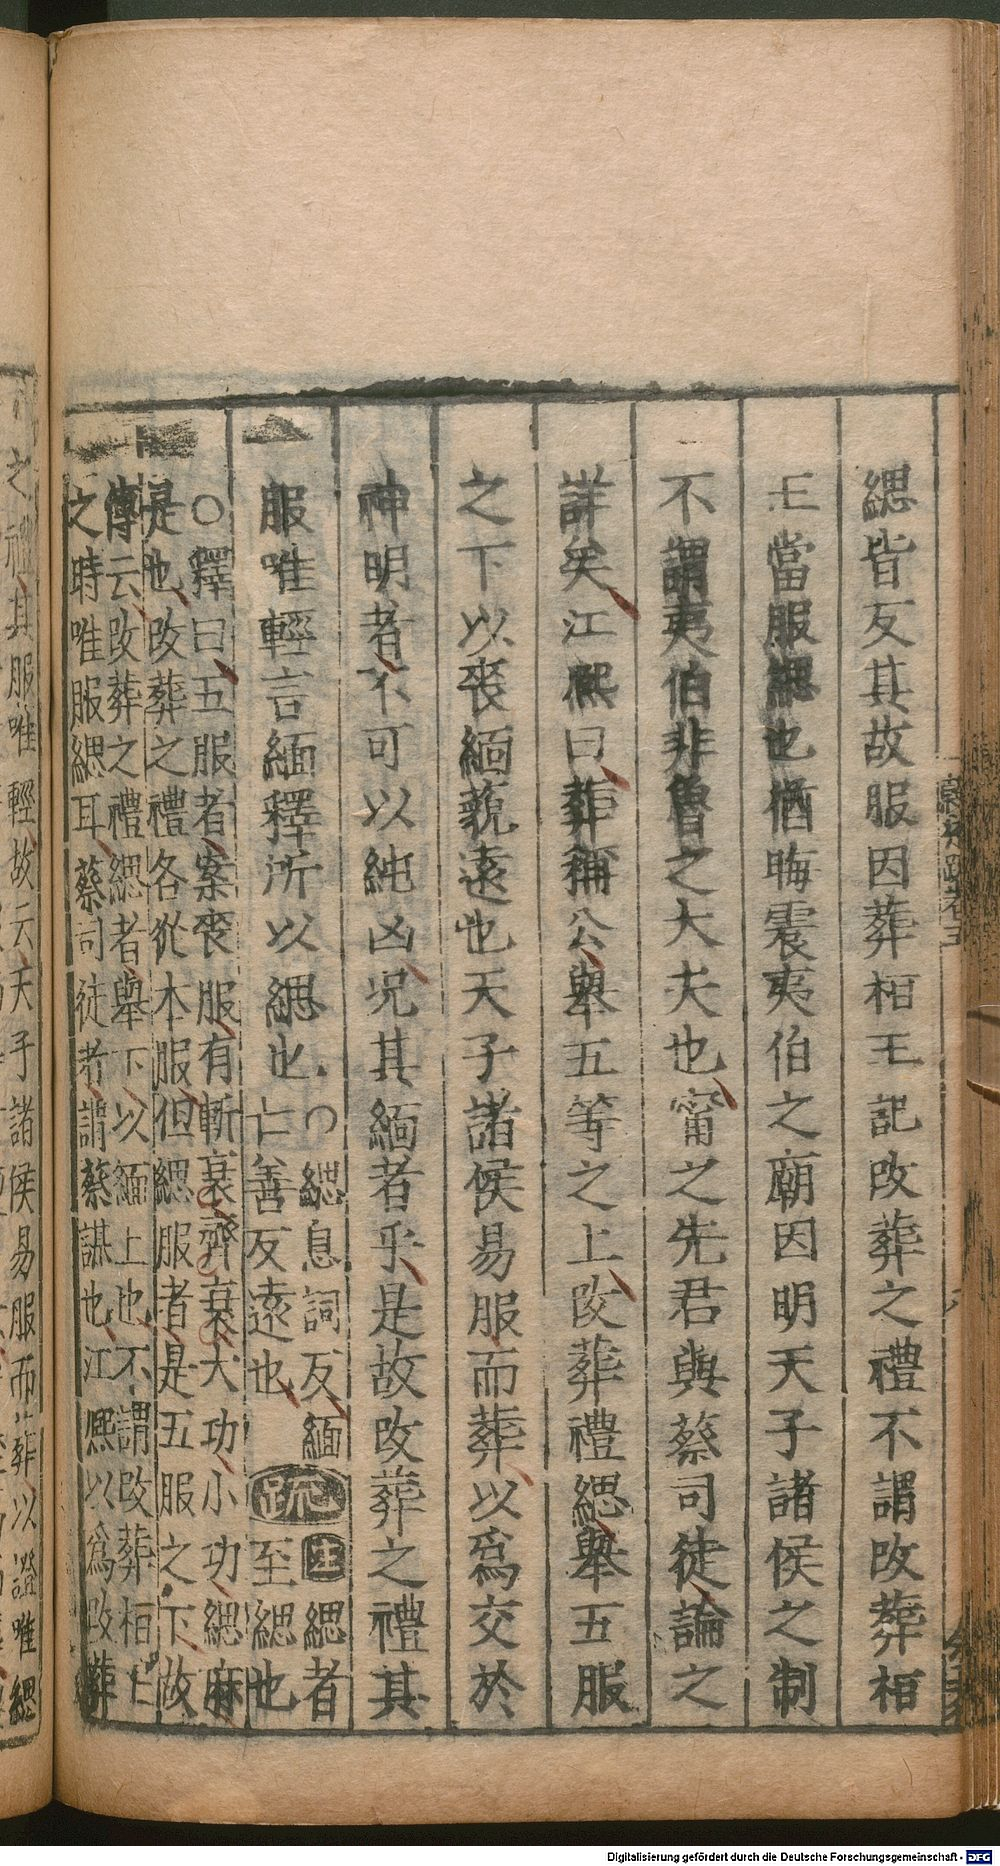 緦皆反其故服因葬桓王記改葬之禮不謂改葬桓
王當服緦也猶晦震夷伯之廟因明天子諸侯之制
不謂夷伯非魯之大夫也甯之先君與蔡司徒論之
詳矣江熙曰葬稱公舉五等之上改葬禮緦舉五服
之下以喪緬藐遠也天子諸侯易服而葬以爲交於
神明者不可以純凶况其緬者乎是故改葬之禮其
服唯輕言緬釋所以緦也
○緦息詞反緬
亡善反遠也
疏
注緦者
至緦也
○釋曰五服者案喪服有斬衰齊衰大功小功緦麻
是也改葬之禮各從本服但緦服者是五服之下故
傳云改葬之禮緦者舉下以緬上也不謂改葬桓王
之時唯服緦耳蔡司徒者謂蔡謨也江熙以爲改葬
之禮其服唯輕故云天子諸侯易服而葬以證唯緦
Digitalisierung gefördert durch die Deutsche Forschungsgemeinschaft - DFG